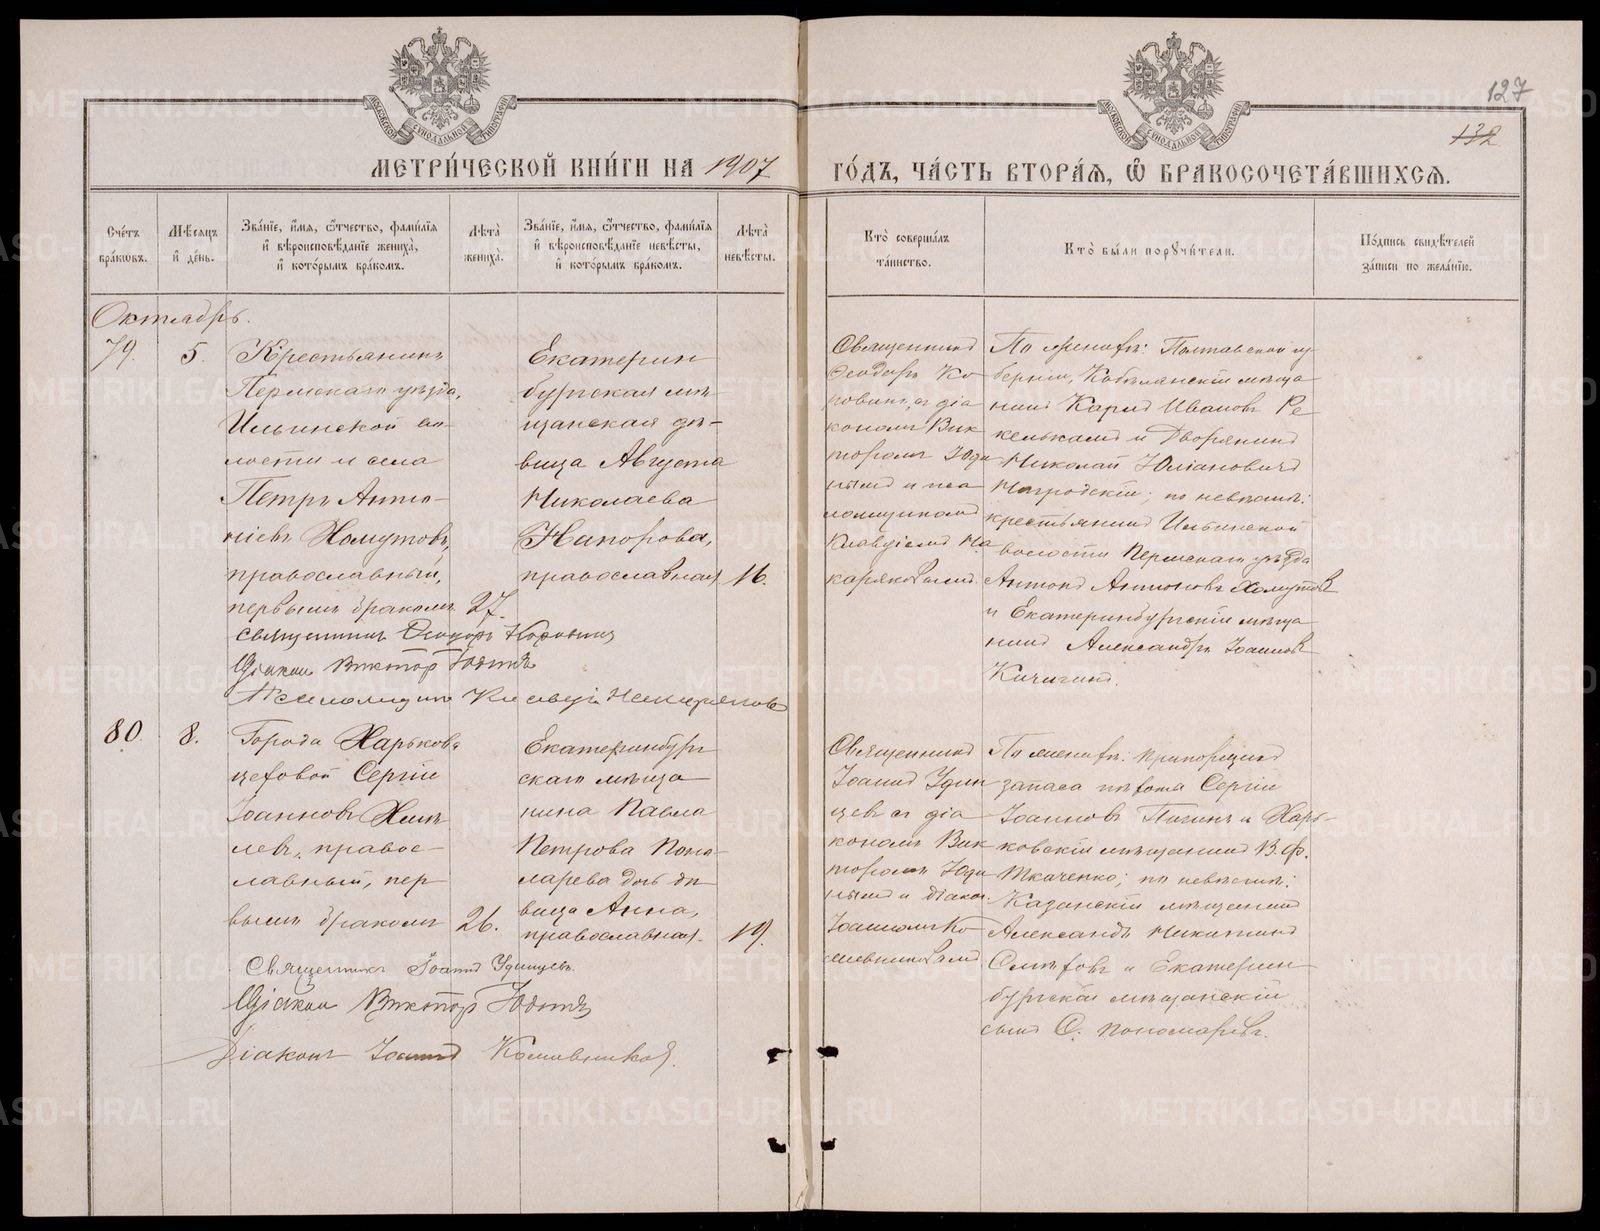 127
132
МЕТРИ́ЧЕСКОЙ КНИ́ГИ НА 1907
ГО́ДЪ, ЧА́СТЬ ВТОРА́Я, Ѽ БРАКОСОЧЕТА́ВШИХСЯ.
Сче́тъ бра́кѡвъ.
Мѣ́сяцъ и҆ де́нь.
Зва́нїе, и҆́мя, ѻ҆́тчество, фами́лїя
и҆ вѣроисповѣ́данїе жениха̀,
и҆ кото́рымъ бра́комъ.
Лѣта̀ жениха̀.
Зва́нїе, и҆́мя, ѻ҆́тчество, фами́лїя
и҆ вѣроисповѣ́данїе невѣ́сты,
и҆ кото́рымъ бра́комъ.
Лѣта̀ невѣ́сты.
Кто̀ соверша́лъ
та́инство.
Кто̀ бы́ли порꙋчи́тели.
По́дпись свидѣ́телей
за́писи по жела́нїю.
Октябрь.
79.
5.
Крестьянинъ
Пермскаго уѣзда,
Ильинской во-
лости и села
Петръ Анто-
ніевъ Хомутовъ,
православный,
первымъ бракомъ
27.
Екатерин
бургская мѣ-
щанская дѣ-
вица Августа
Николаева
Напорова,
православная
16.
Священникъ
Ѳеодоръ Ко
ровинъ, съ діа
кономъ Вик
торомъ Юди
нымъ и пса
ломщикомъ
Клавдіемъ На
каряковымъ.
По женихѣ: Полтавской гу-
берніи, Кобелякскій мѣща
нинъ Карпъ Ивановъ Ре-
и Дворянинъ
Николай Юліановичъ
по невѣстѣ:
крестьянинъ Ильинской
волости Пермскаго уѣзда
Антонъ Антоновъ Хомутовъ
и Екатеринбургскій мѣща
нинъ Александръ Іоанновъ
Кичигинъ.
Священникъ Ѳеодоръ Коровинъ
Діаконъ Викторъ Юдинъ
Псаломщикъ Клавдій Накаряковъ
80.
8.
Города Харькова
цеховой Сергій
Іоанновъ Хмѣ
левъ, правос-
лавный, пер
вымъ бракомъ
26.
Екатеринбург
скаго мѣща
нина Павла
Петрова Поно-
марева дочь дѣ
вица Анна,
православная.
19.
Священникъ
Іоаннъ Удин
цевъ съ діа
кономъ Вик
торомъ Юди
нымъ и діакон.
Іоанномъ Ко
мельниковымъ
По женихѣ: Прапорщикъ
запаса пѣхоты Сергій
Іоанновъ Пагинъ и Харь-
ковскій мѣщанинъ В. Ф.
Ткаченко; по невѣстѣ:
Казанскій мѣщанинъ
Александръ Никитинъ
и Екатерин
бургскій мѣщанскій
сынъ С. Пономаревъ.
Священникъ Іоаннъ Удинцевъ.
Діаконъ Викторъ Юдинъ
Діаконъ Іоаннъ